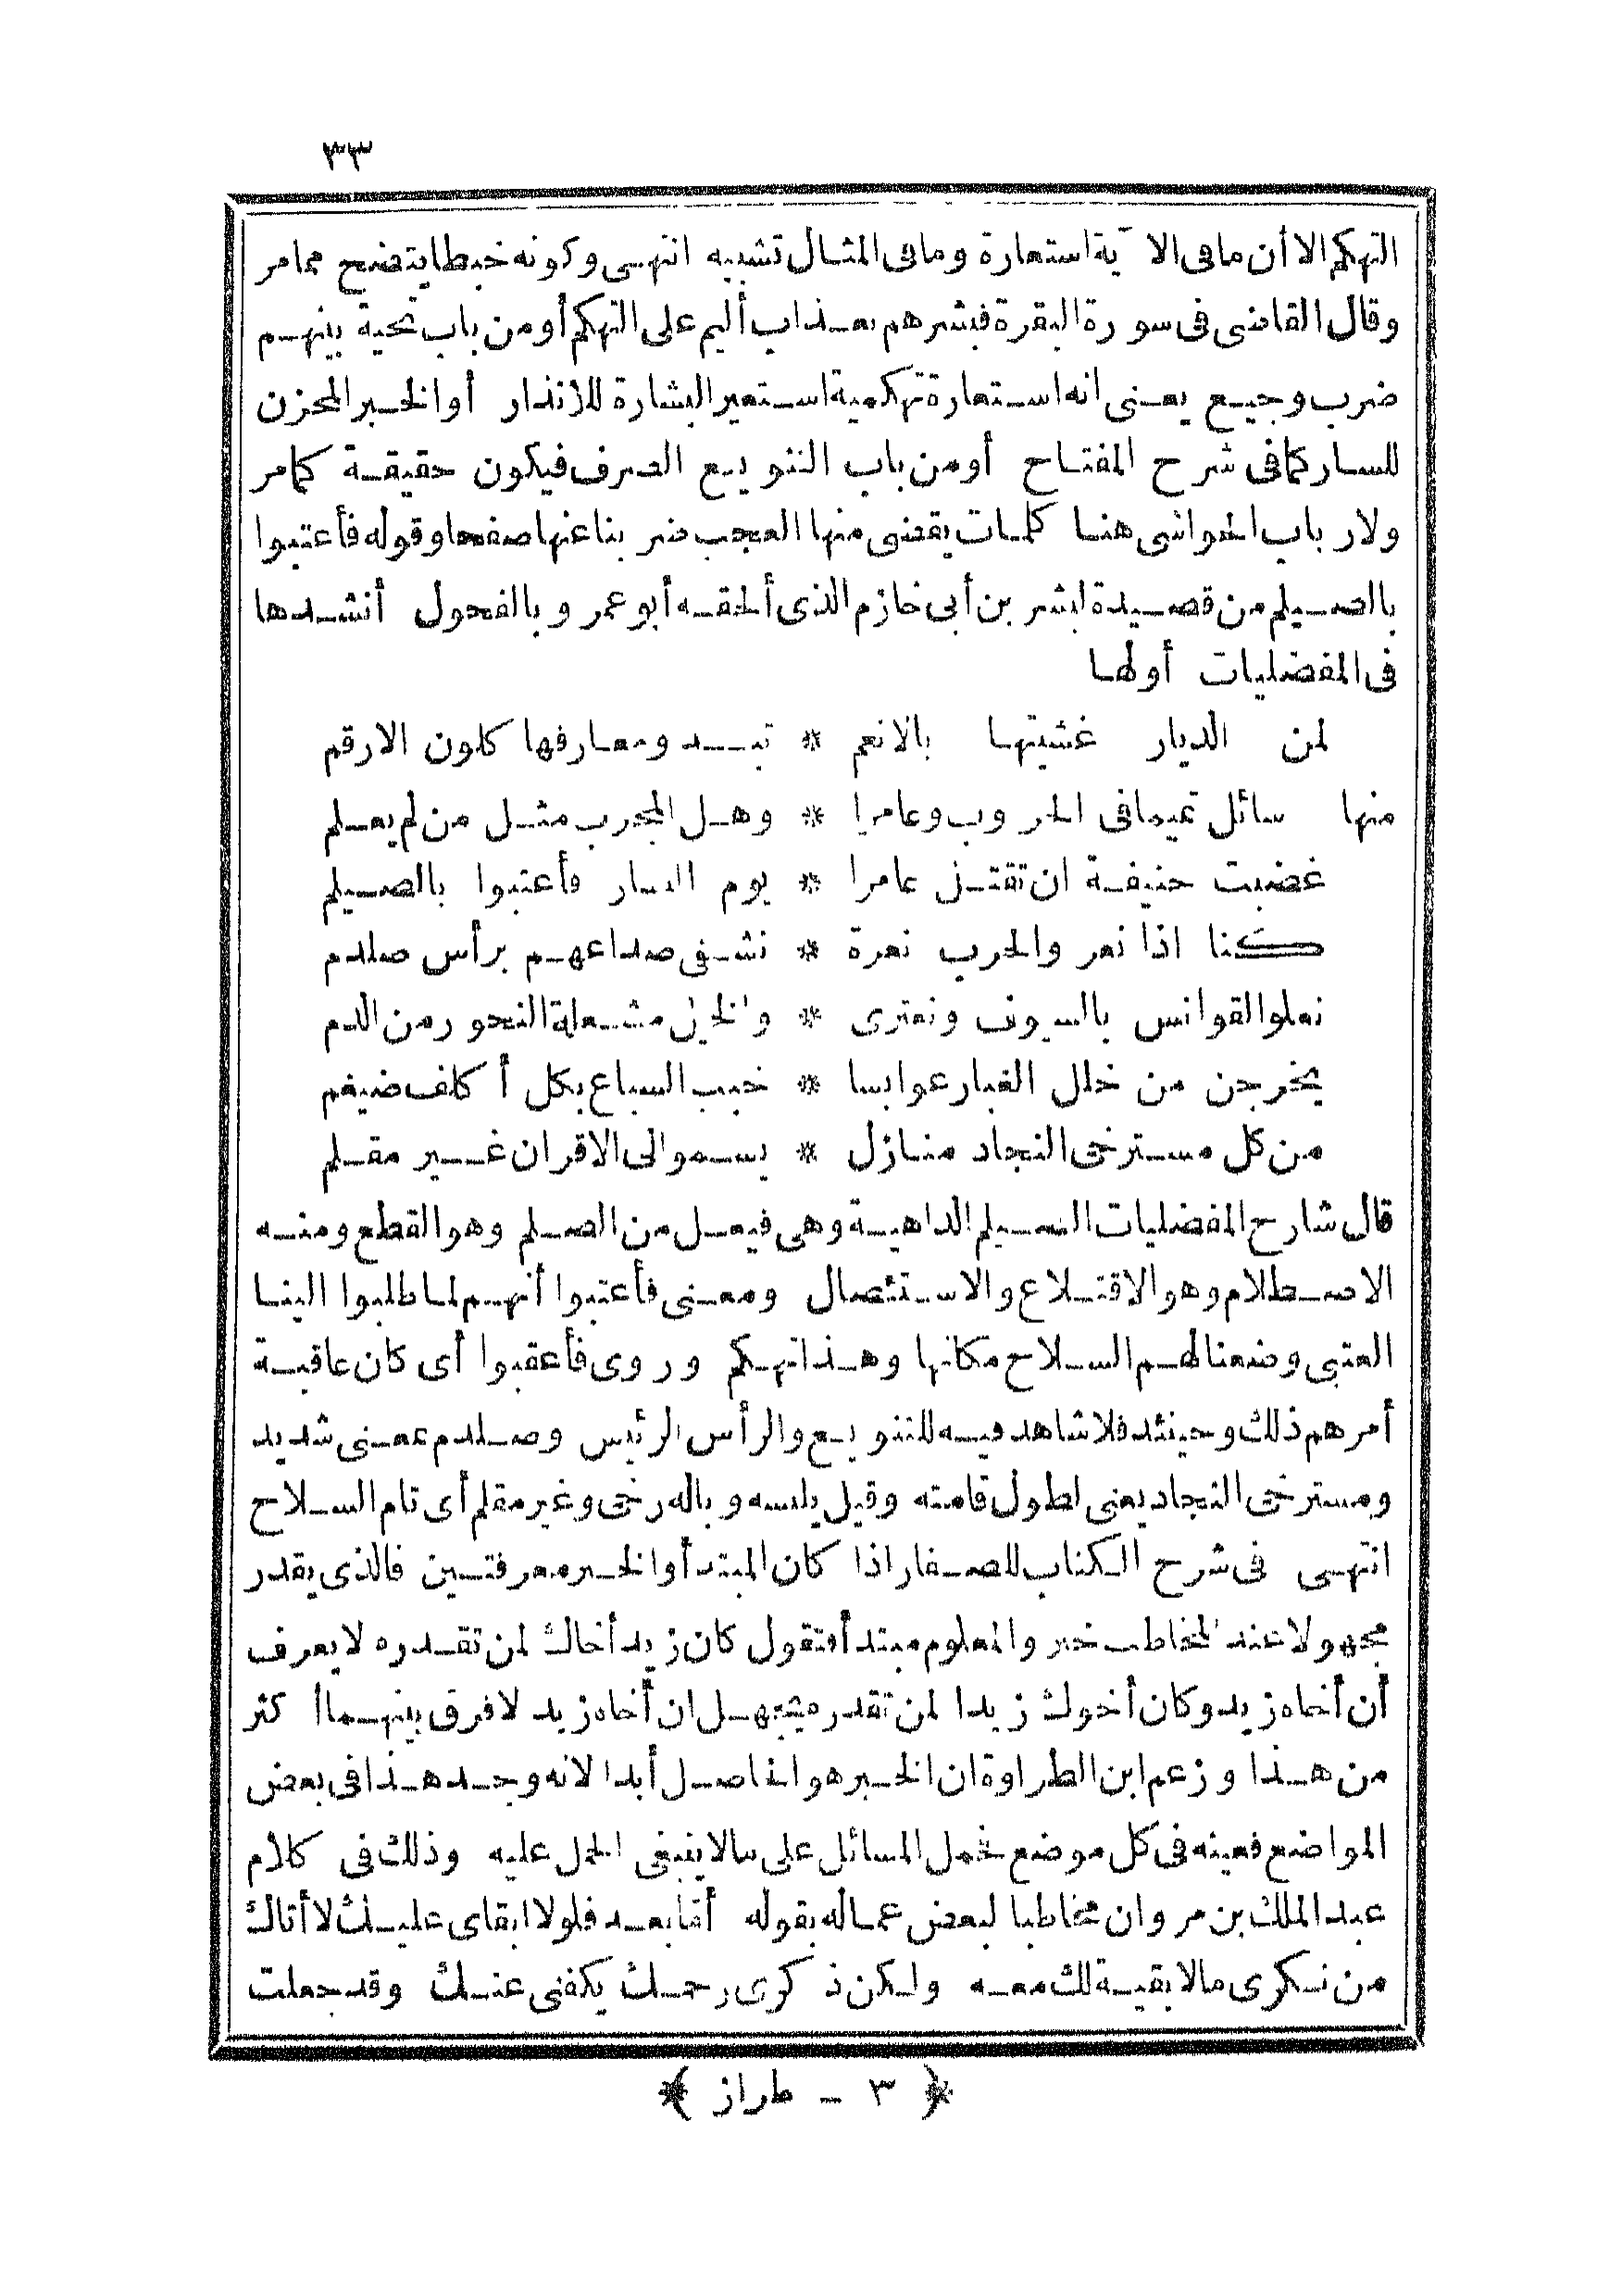 ٣٣
التهكم الا أن مافى الآية استعارة ومافى المثال تشبيه انتهى وكونه خبطا يتضح مما مر
وقال القاضى فى سورة البقرة فبشرهم بعذاب أليم على التهكم أومن باب تحية بينهم
ضرب وجيع يعنى انه استعارة تهكمية استعير البشارة للانذار أو الخبر المحزن
للسار كمافى شرح المفتاح أومن باب التنويع الصرف فيكون حقيقة كمامر
ولارباب الحواشى هنا كلمات يقضى منها العجب ضربنا عنها صفحا وقوله فأعتبوا
بالصيلم من قصيدة لبشر بن أبى خازم الذى ألحقه أبو عمرو بالفحول أنشدها
فى المفضليات أولها
لمن الديار غشيتها بالانعم * تبدو معارفها كلون الارقم
منها سائل تميمافى الحروب وعامرا * وهل المجرب مثل من لم يعلم
غضبت حنيفة ان تقتل عامرا * يوم النسار فأعتبوا بالصيلم
كنا اذا نعروا لحرب نعرة * نشفى صداعهم برأس صلدم
نعلو القوانس بالسيوف ونعتزى * والخيل مشعلة النحور من الدم
يخرجن من خلل الغبار عوابسا * خبب السباع بكل أكلف ضيغم
من كل مسترخى النجاد منازل * يسمو الى الاقران غير مقلم
قال شارح المفضليات الصيلم الداهية وهى فيعل من الصلم وهو القطع ومنه
الاصطلام وهو الاقتلاع والاستئصال ومعنى فأعتبوا أنهم لما طلبوا الينا
العتبى وضعنا لهم السلاح مكانها وهذا تهكم وروى فأعقبوا أى كان عاقبة
أمرهم ذلك وحينئذ فلا شاهد فيه للتنويع والرأس الرئيس وصلدم بمعنى شديد
ومسترخى النجاد يعنى لطول قامته وقيل يلبسه وباله رخى وغير مقلم أى تام السلاح
انتهى فى شرح الكتاب للصفار اذا كان المبتدأ والخبر معرفتين فالذى يقدر
مجهولا عند المخاطب خبر والمعلوم مبتدأ فتقول كان زيد أخاك لمن تقدره لا يعرف
أن أخاه زيد وكان أخوك زيدا لمن تقدره يجهل ان أخاه زيد لا فرق بينهما أكثر
من هذا وزعم ابن الطراوة ان الخبر هو الحاصل أبدا لانه وجد هذا فى بعض
المواضع فعينه فى كل موضع فحمل المسائل على مالا ينبغى الحمل عليه وذلك فى كلام
عبد الملك بن مروان مخاطبا لبعض عماله بقوله أما بعد فلولا ابقاى عليك لاأتاك
من نكرى مالا بقية لك معه ولكن ذكرى رحمك يكفنى عنك وقد جعلت
﴿ ٣ - طراز ﴾